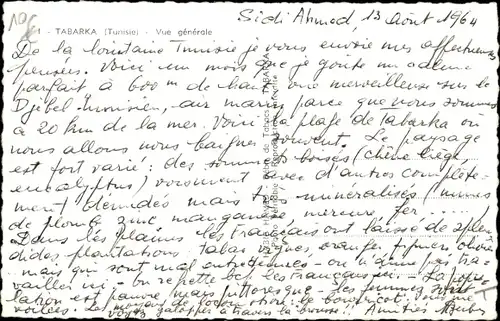 1 - TABARKA (Tunisie) - Vue générale
Sidi Ahmed, 13 août 1964
De la lointaine Tunisie je vous envoie mes affectueuses
pensées. Voici un mois que je goûte un calme
parfait à 600 m de haut, une merveilleuse sur le
Djebel tunisien, air marin parce que nous sommes
à 20 km de la mer. Voici la plage de Tabarka où
nous allons nous baigner souvent. Le paysage
est fort varié : des sommets boisés (chêne liège,
eucalyptus) voisinent avec d'autres complète-
ment dénudés mais très minéralisés (mines
de plomb, zinc, manganèse, mercure, fer...
Dans les plaines les Français ont laissé de splen-
dides plantations : tabac, vignes, oranges, figuiers, oliviers
mais qui sont mal entretenues - on n'aime pas tra-
vailler ici - on regrette les Français ici. La popu-
lation est pauvre mais pittoresque - les femmes sont
voilées. moyen de locomotion : le bourricot. Vous me
voyez galoper à travers la brousse !! Amitiés